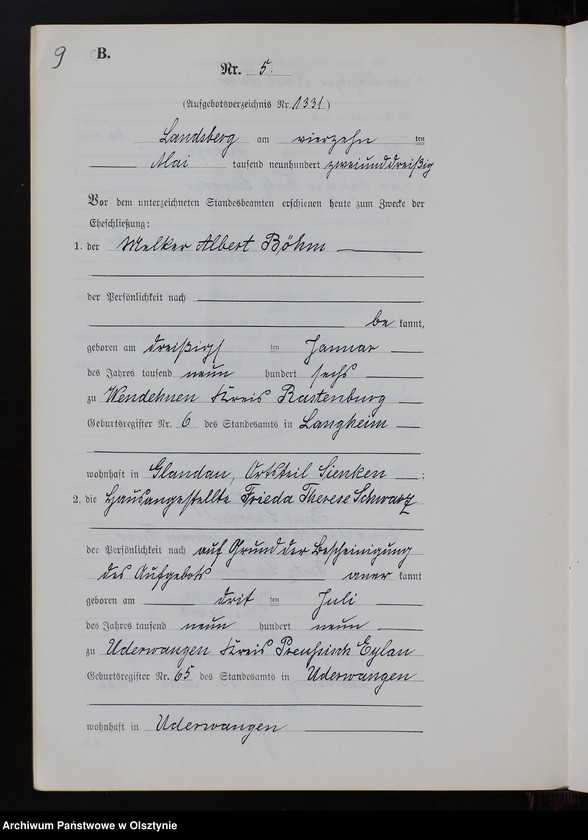 9 B.
Nr. 5.
(Aufgebotsverzeichnis Nr. 1331)
Landsberg am vierzehn ten
Mai tausend neunhundert zweiunddreißig
Vor dem unterzeichneten Standesbeamten erschienen heute zum Zwecke der
Eheschließung:
1. der Melker Albert Böhm
der Persönlichkeit nach
be kannt,
geboren am dreißigs ten Januar
des Jahres tausend neun hundert sechs
zu Wendehnen Kreis Rastenburg
Geburtsregister Nr. 6 des Standesamts in Langheim
wohnhaft in Glandau, Ortsteil Sienken ;
2. die Hausangestellte Frieda Therese Schwarz
der Persönlichkeit nach auf Grund der Bescheinigung
des Aufgebots aner kannt
geboren am drit ten Juli
des Jahres tausend neun hundert neun
zu Uderwangen Kreis Preußisch Eylau
Geburtsregister Nr. 65 des Standesamts in Uderwangen
wohnhaft in Uderwangen
Archiwum Państwowe w Olsztynie